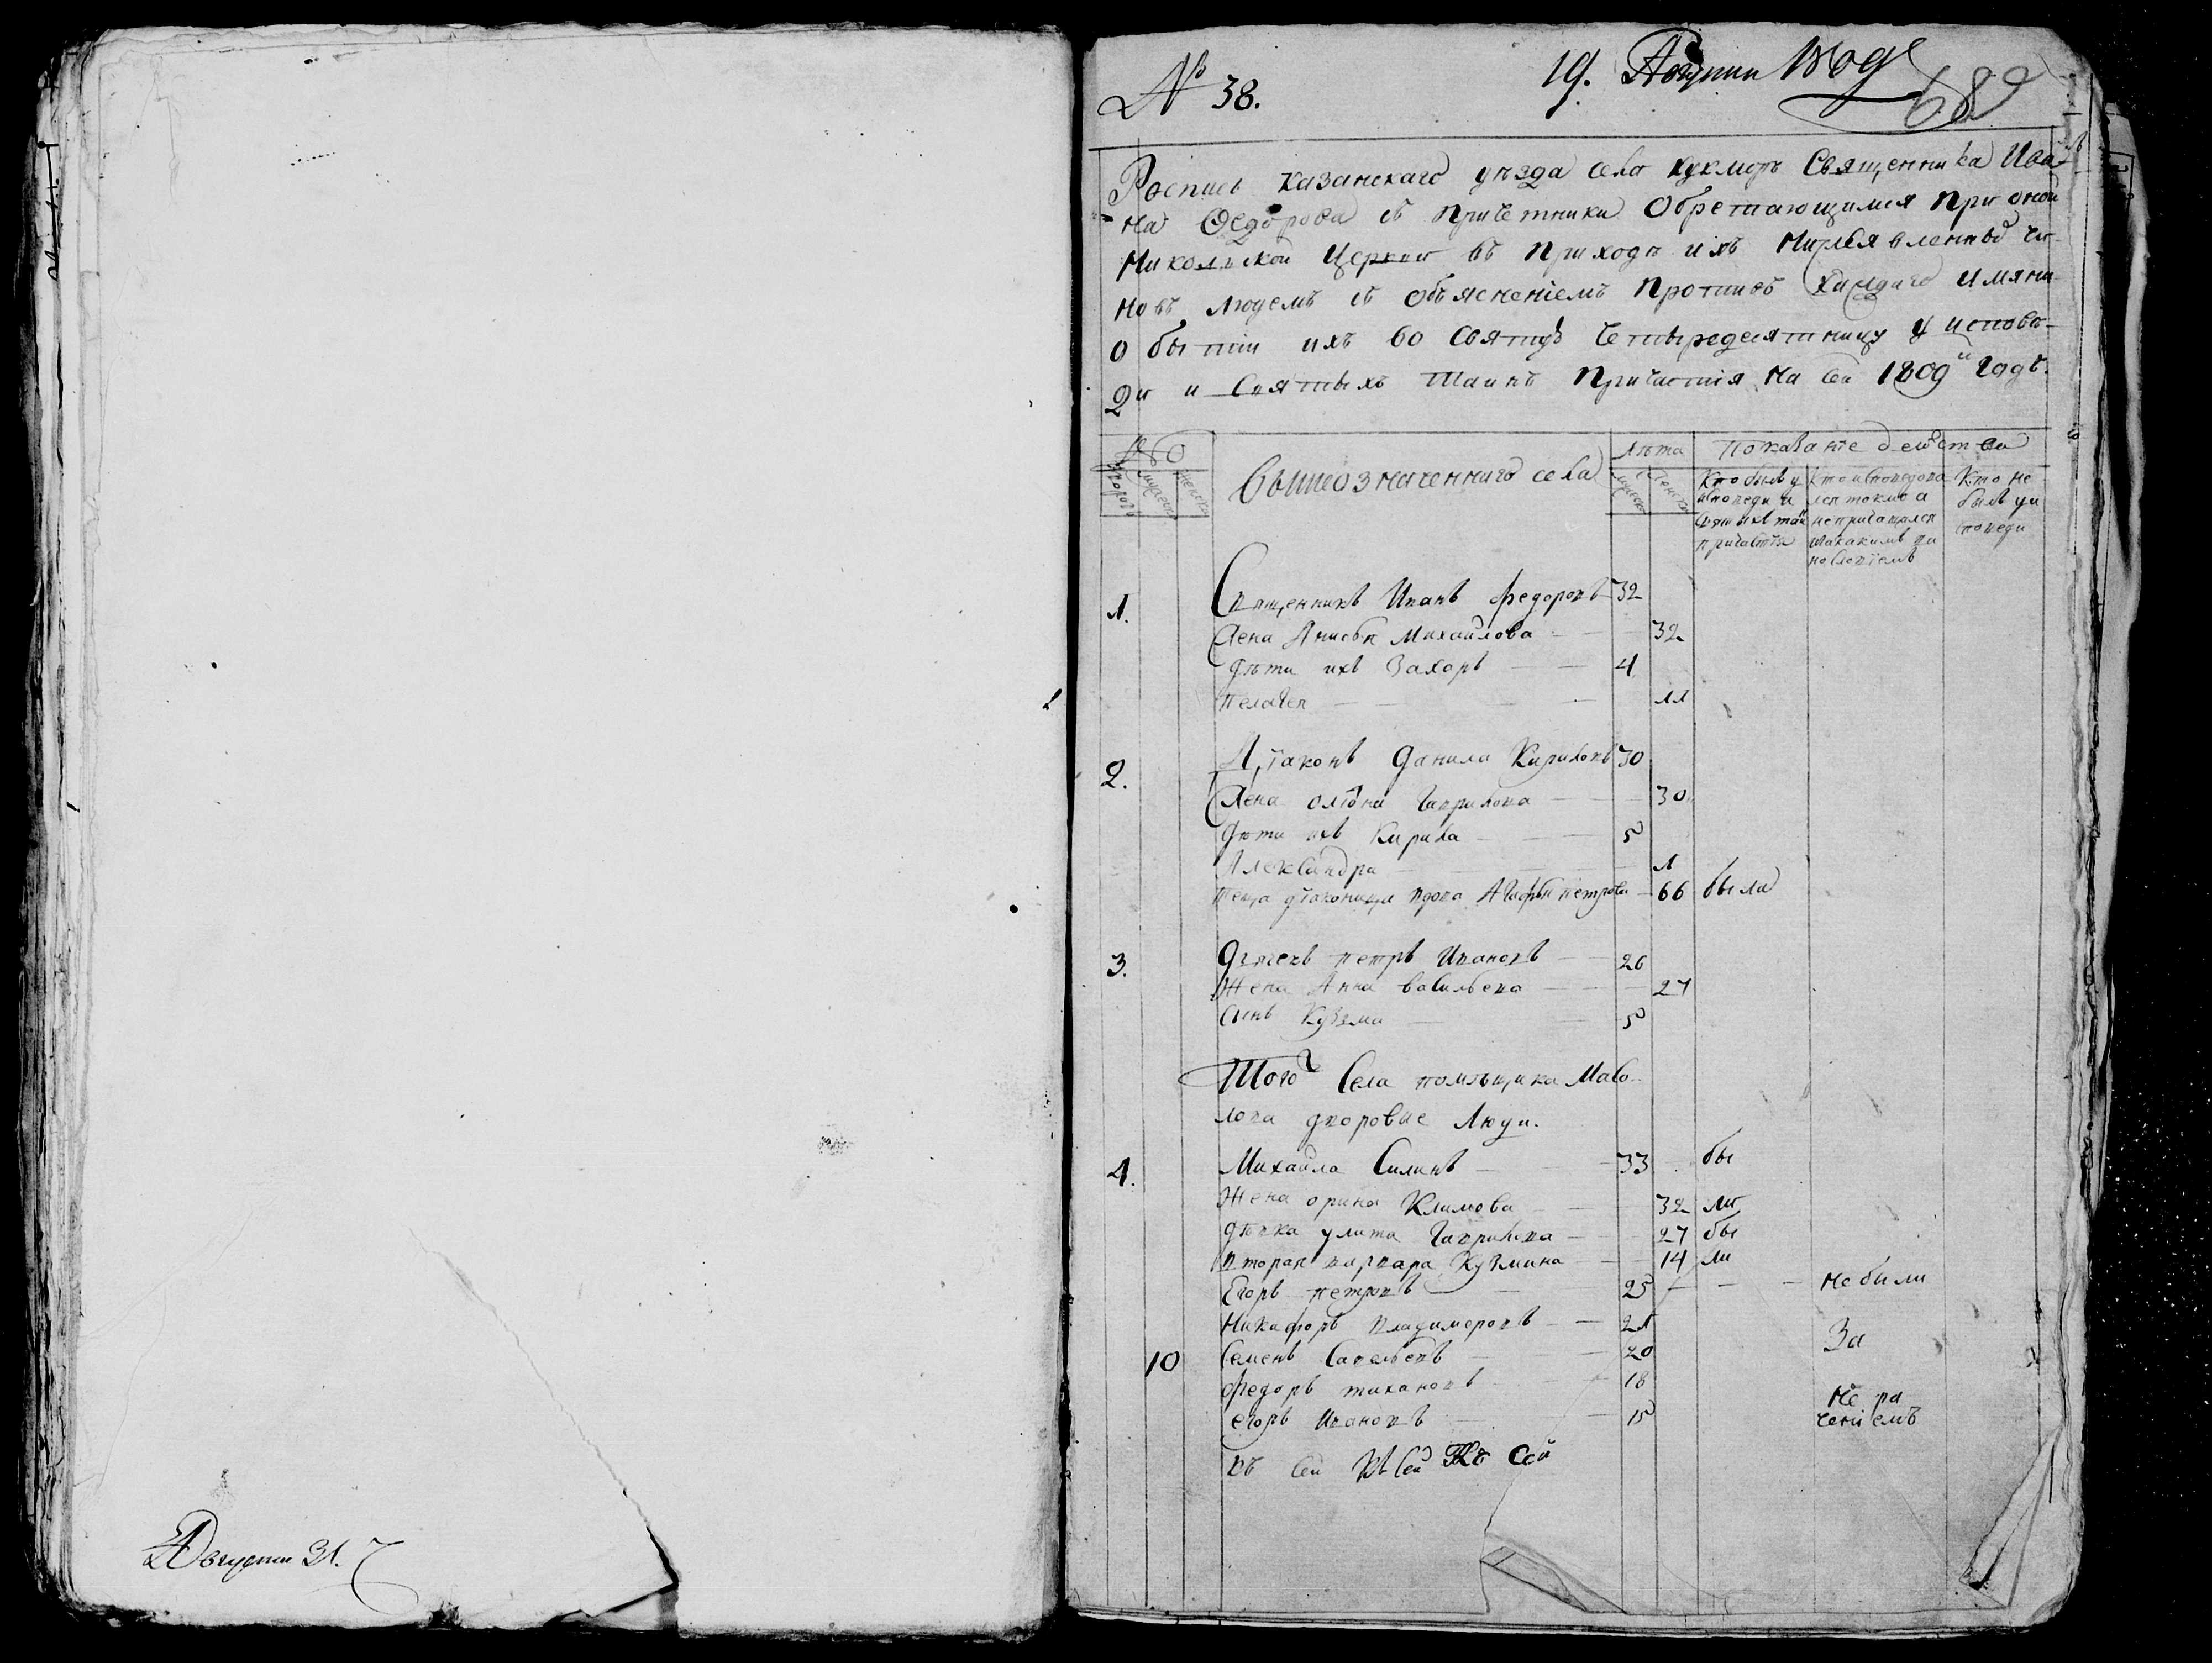 Августа 31.
№ 38.
19. Августа 1809
682
Роспись Казанскаго уѣзда села Кукморъ Священника Ива-
на Ѳедорова съ причетники обретающимся при оной
Николской церкви въ приходѣ ихъ нижеявленныхъ чи-
новъ людемъ съ объясненіемъ противъ каждаго имяни
о бытіи ихъ во святую четыредесятницу у испове-
ди и святыхъ таинъ причастія на сей 1809й Годъ.
Число
Дворовъ мужеска женска
вышеозначеннаго села
Лѣта
мужеска женска
показанiе действа
Кто былъ у исповеди и святыхъ таин причастія
Кто исповедовался токмо а не причащался и за какимъ винословіемъ
Кто не былъ у исповеди
1. Священникъ Иванъ федоровъ 32
Жена Анисья Михайлова 32
дѣти ихъ Захаръ 4
пелагея 11
2. Діаконъ Данила Кириловъ 30
Жена олiона Гаврилова 30
дѣти ихъ Кирила 5
Александра 1
теща дiаконица вдова Агафья петрова 66 была
3. Дьячекъ петръ Ивановъ 26
Жена Анна васильева 27
сынъ Кузма 5
Того Села помѣщика Масо-
лова дворовые Люди.
4. Михайла Силинъ 33 бы
Жена орина Климова 32 ли
дѣвка улита Гаврилова 27 бы
вторая варвара Кузмина 14 ли
Егоръ петровъ 25 не были
Никафоръ владимеровъ 21 За
10 Семенъ Савельевъ 20
федоръ тихановъ 18 не ра
егоръ Ивановъ 15 ченіемъ
къ сей къ сей Къ Сей